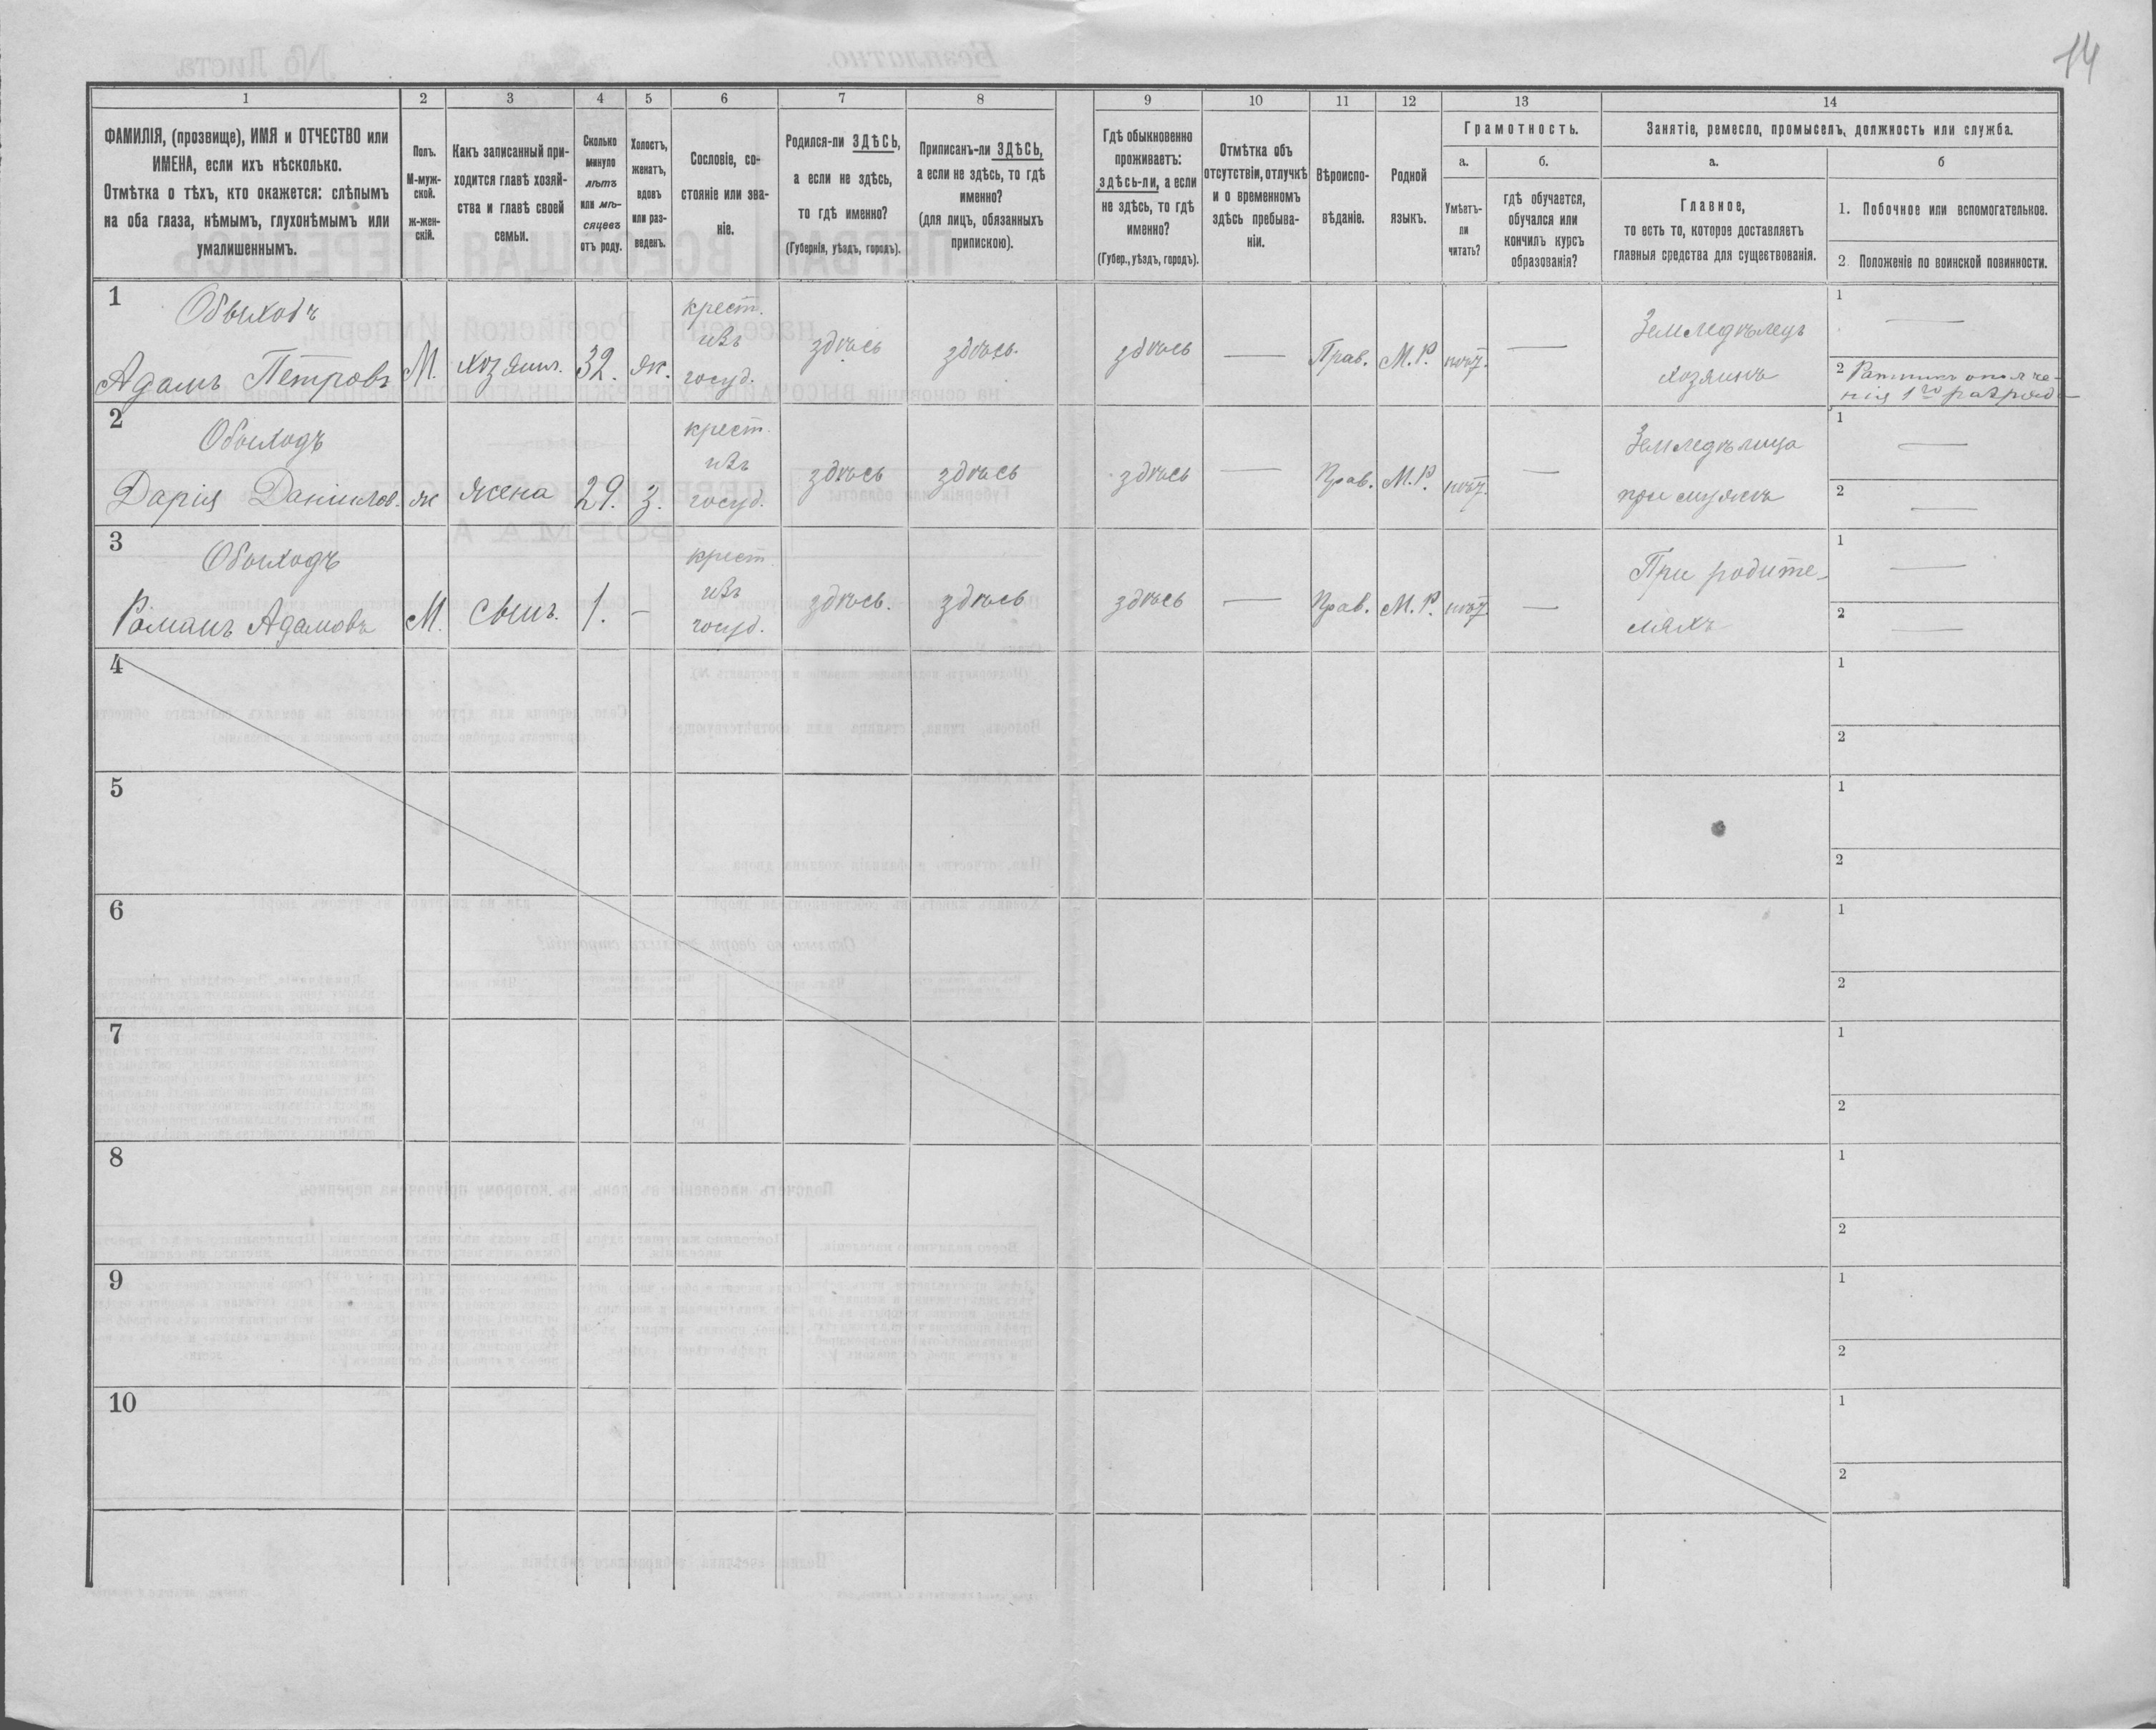 14
1
2
3
4
5
6
7
8
9
10
11
12
13
14
ФАМИЛІЯ, (прозвище), ИМЯ и ОТЧЕСТВО или
ИМЕНА, если ихъ нѣсколько.
Отмѣтка о тѣхъ, кто окажется: слѣпымъ
на оба глаза, нѣмымъ, глухонѣмымъ или
умалишеннымъ.
Полъ.
М-муж-
ской.
ж-жен-
скій.
Какъ записанный при-
ходится главѣ хозяй-
ства и главѣ своей
семьи.
Сколько
минуло
лѣтъ
или мѣ-
сяцевъ
отъ роду.
Холостъ,
женатъ,
вдовъ
или раз-
веденъ.
Сословіе, со-
стояніе или зва-
ніе.
Родился-ли ЗДѢСЬ,
а если не здѣсь,
то гдѣ именно?
(Губернія, уѣздъ, городъ).
Приписанъ-ли ЗДѢСЬ,
а если не здѣсь, то гдѣ
именно?
(для лицъ, обязанныхъ
припискою).
Гдѣ обыкновенно
проживаетъ:
здѣсь-ли, а если
не здѣсь, то гдѣ
именно?
(Губер., уѣздъ, городъ).
Отмѣтка объ
отсутствіи, отлучкѣ
и о временномъ
здѣсь пребыва-
ніи.
Вѣроиспо-
вѣданіе.
Родной
языкъ.
Грамотность.
а.
б.
Умѣетъ-
ли
читать?
гдѣ обучается,
обучался или
кончилъ курсъ
образованія?
Занятіе, ремесло, промыселъ, должность или служба.
а.
б
Главное,
то есть то, которое доставляетъ
главныя средства для существованія.
1. Побочное или вспомогательное.
2. Положеніе по воинской повинности.
1
Обыходъ
Адамъ Петровъ
М.
хозяин.
32.
ж.
крест.
изъ
госуд.
здѣсь
здѣсь.
здѣсь
—
Прав.
М.Р.
нѣт.
—
Земледѣлецъ
хозяинъ
1
—
2 Ратникъ ополче-
нія 1го разряда
2
Обыходъ
Дарія Данилов.
ж
жена
29.
З.
крест.
изъ
госуд.
здѣсь
здѣсь
здѣсь
—
Прав.
М.Р.
нѣт.
—
Земледѣлица
при мужѣ
1
—
2
—
3
Обыходъ
Романъ Адамовъ
М.
сынъ.
1.
-
крест.
изъ
госуд.
здѣсь.
здѣсь
здѣсь
—
Прав.
М.Р.
нѣт
—
При родите-
ляхъ
1
—
2
—
4
1
2
5
1
2
6
1
2
7
1
2
8
1
2
9
1
2
10
1
2